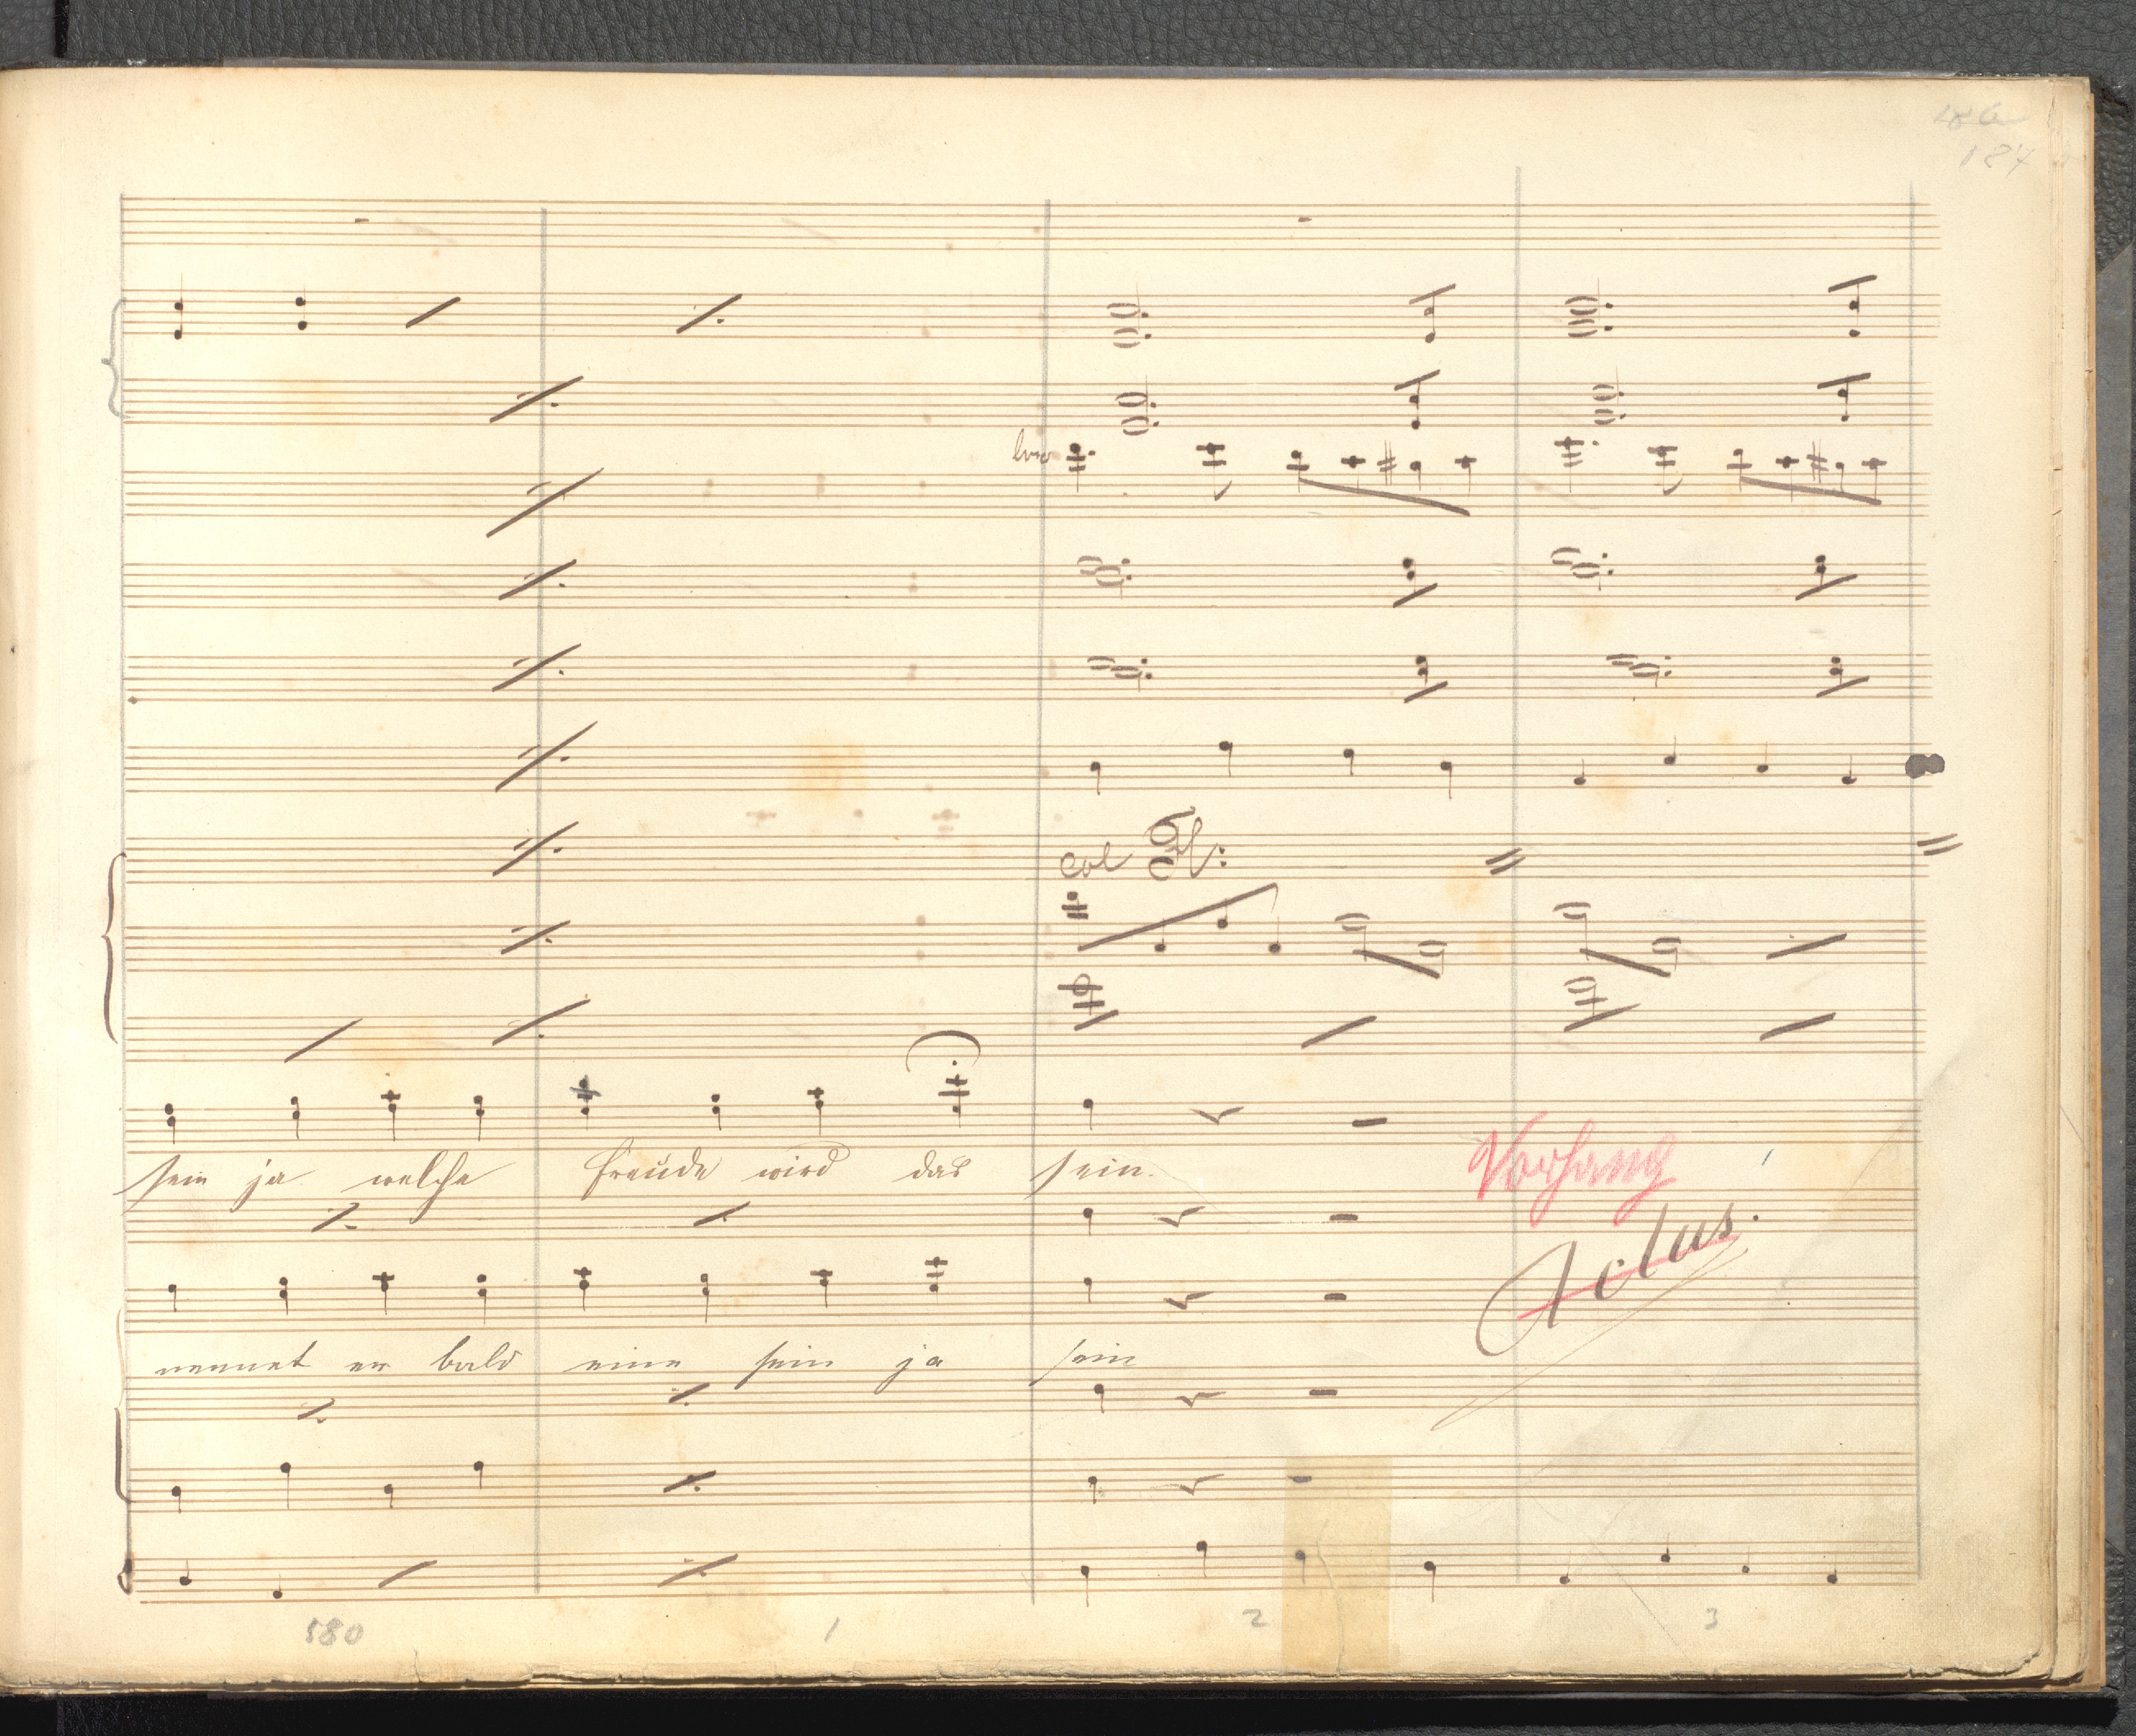 187
loco
col Fl:
sein ja welche freude wird das sein.
Vorhang
Actus.
nennet er bald eine sein ja sein
580 1 2 3